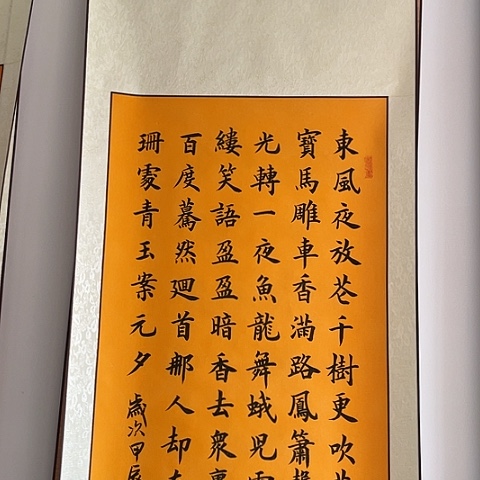 東風夜放花千樹更吹
寶馬雕車香滿路鳳簫
光轉一夜魚龍舞蛾兒雪
縷笑語盈盈暗香去衆裏
百度驀然迴首那人却在
珊處青玉案元夕 歲次甲辰